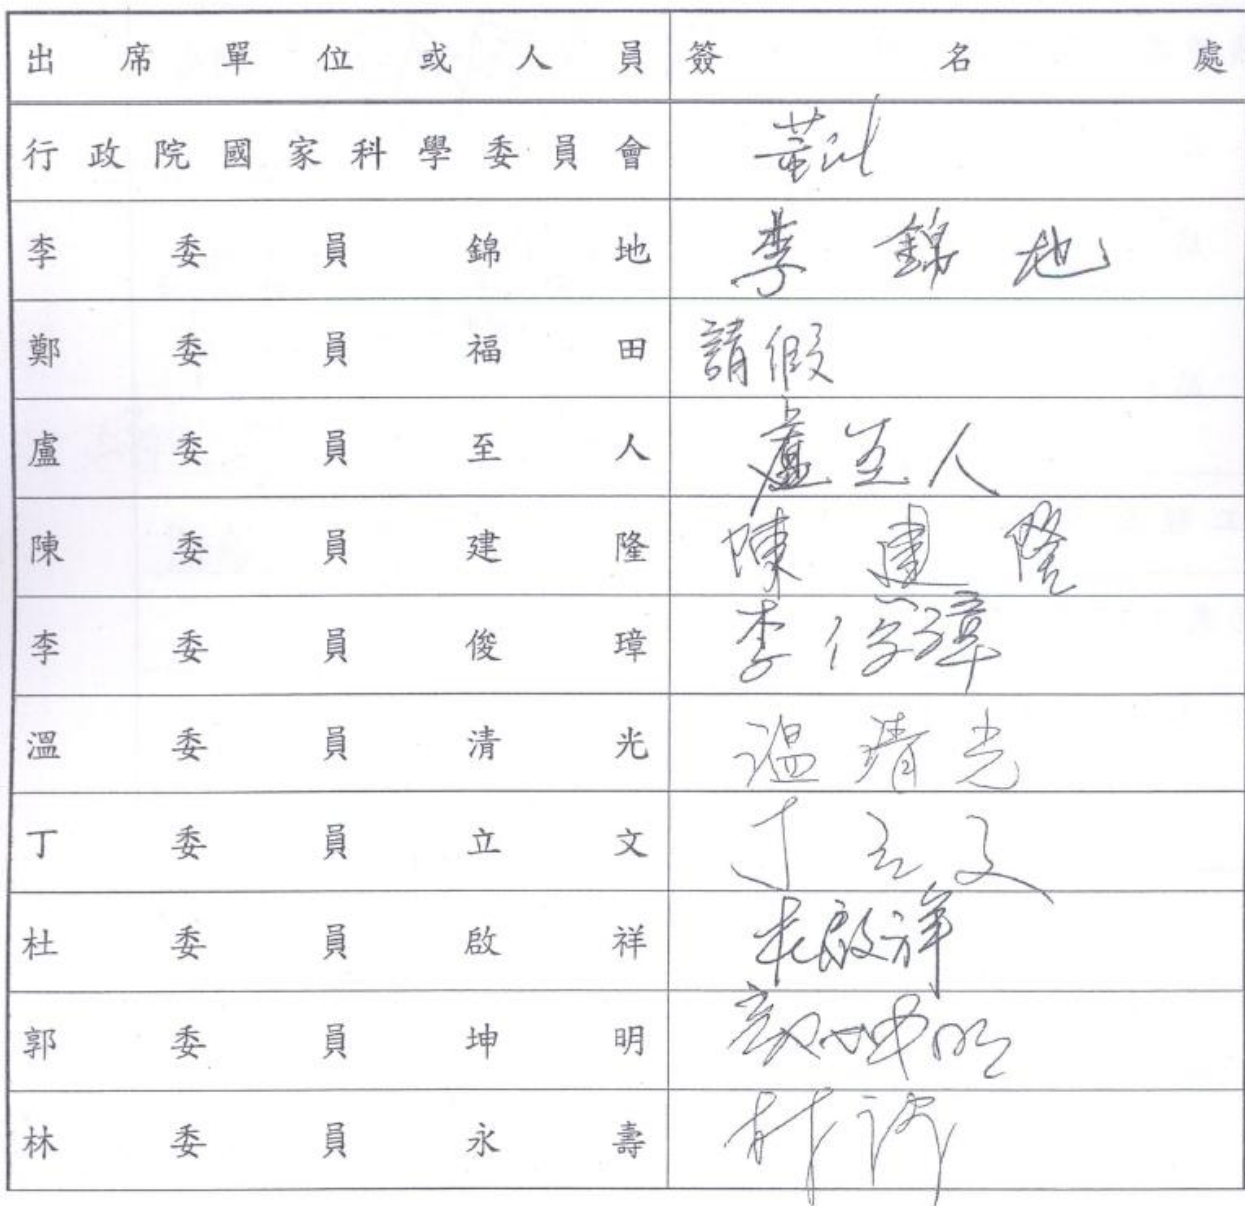 出席單位或人員 簽名處
行政院國家科學委員會
李委員錦地 李錦地
鄭委員福田 請假
盧委員至人 盧至人
陳委員建隆 陳建隆
李委員俊璋 李俊璋
溫委員清光 溫清光
丁委員立文 丁立文
杜委員啟祥 杜啟祥
郭委員坤明 郭坤明
林委員永壽 林